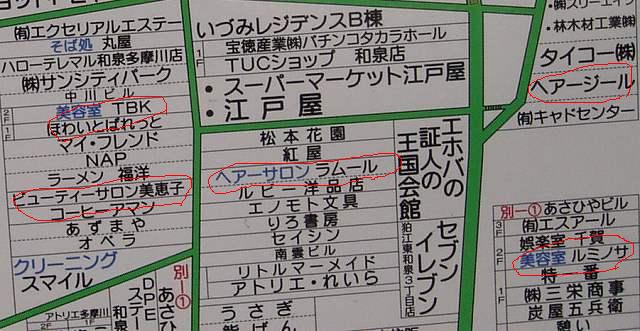 (有)エクセリアルエステー
そば処 丸屋
ハローテレマル和泉多摩川店
(株)サンシティパーク
中川ビル
2F 美容室 TBK
1F ほわいとぱれっと
マイ・フレンド
NAP
ラーメン 福洋
ビューティーサロン美恵子
コーヒーアマン
あずまや
オペラ
クリーニング
スマイル
アトリエ多摩川
DPE
ステー
別ー①
あさひ
いづみレジデンスB棟
1F 宝徳産業(株)パチンコタカラホール
TUCショップ 和泉店
・スーパーマーケット江戸屋
・江戸屋
松本花園
紅屋
ヘアーサロン ラムール
ルビー洋品店
エノモト文具
りろ書房
セイシン
南雲ビル
リトルマーメイド
アトリエ・れいら
うさぎ
エホバの
証人の
王国会館
セブン
イレブン
狛江東和泉3丁目店
・(株)スリーエイ
・林木材工業(株)
タイコー(株)
ヘアージール
(有)キャドセンター
別ー① あさひやビル
3F (有)エスアール
2F 娯楽室 千賀
美容室 ルミノサ
特一番
1F (株)三栄商事
炭屋五兵衛